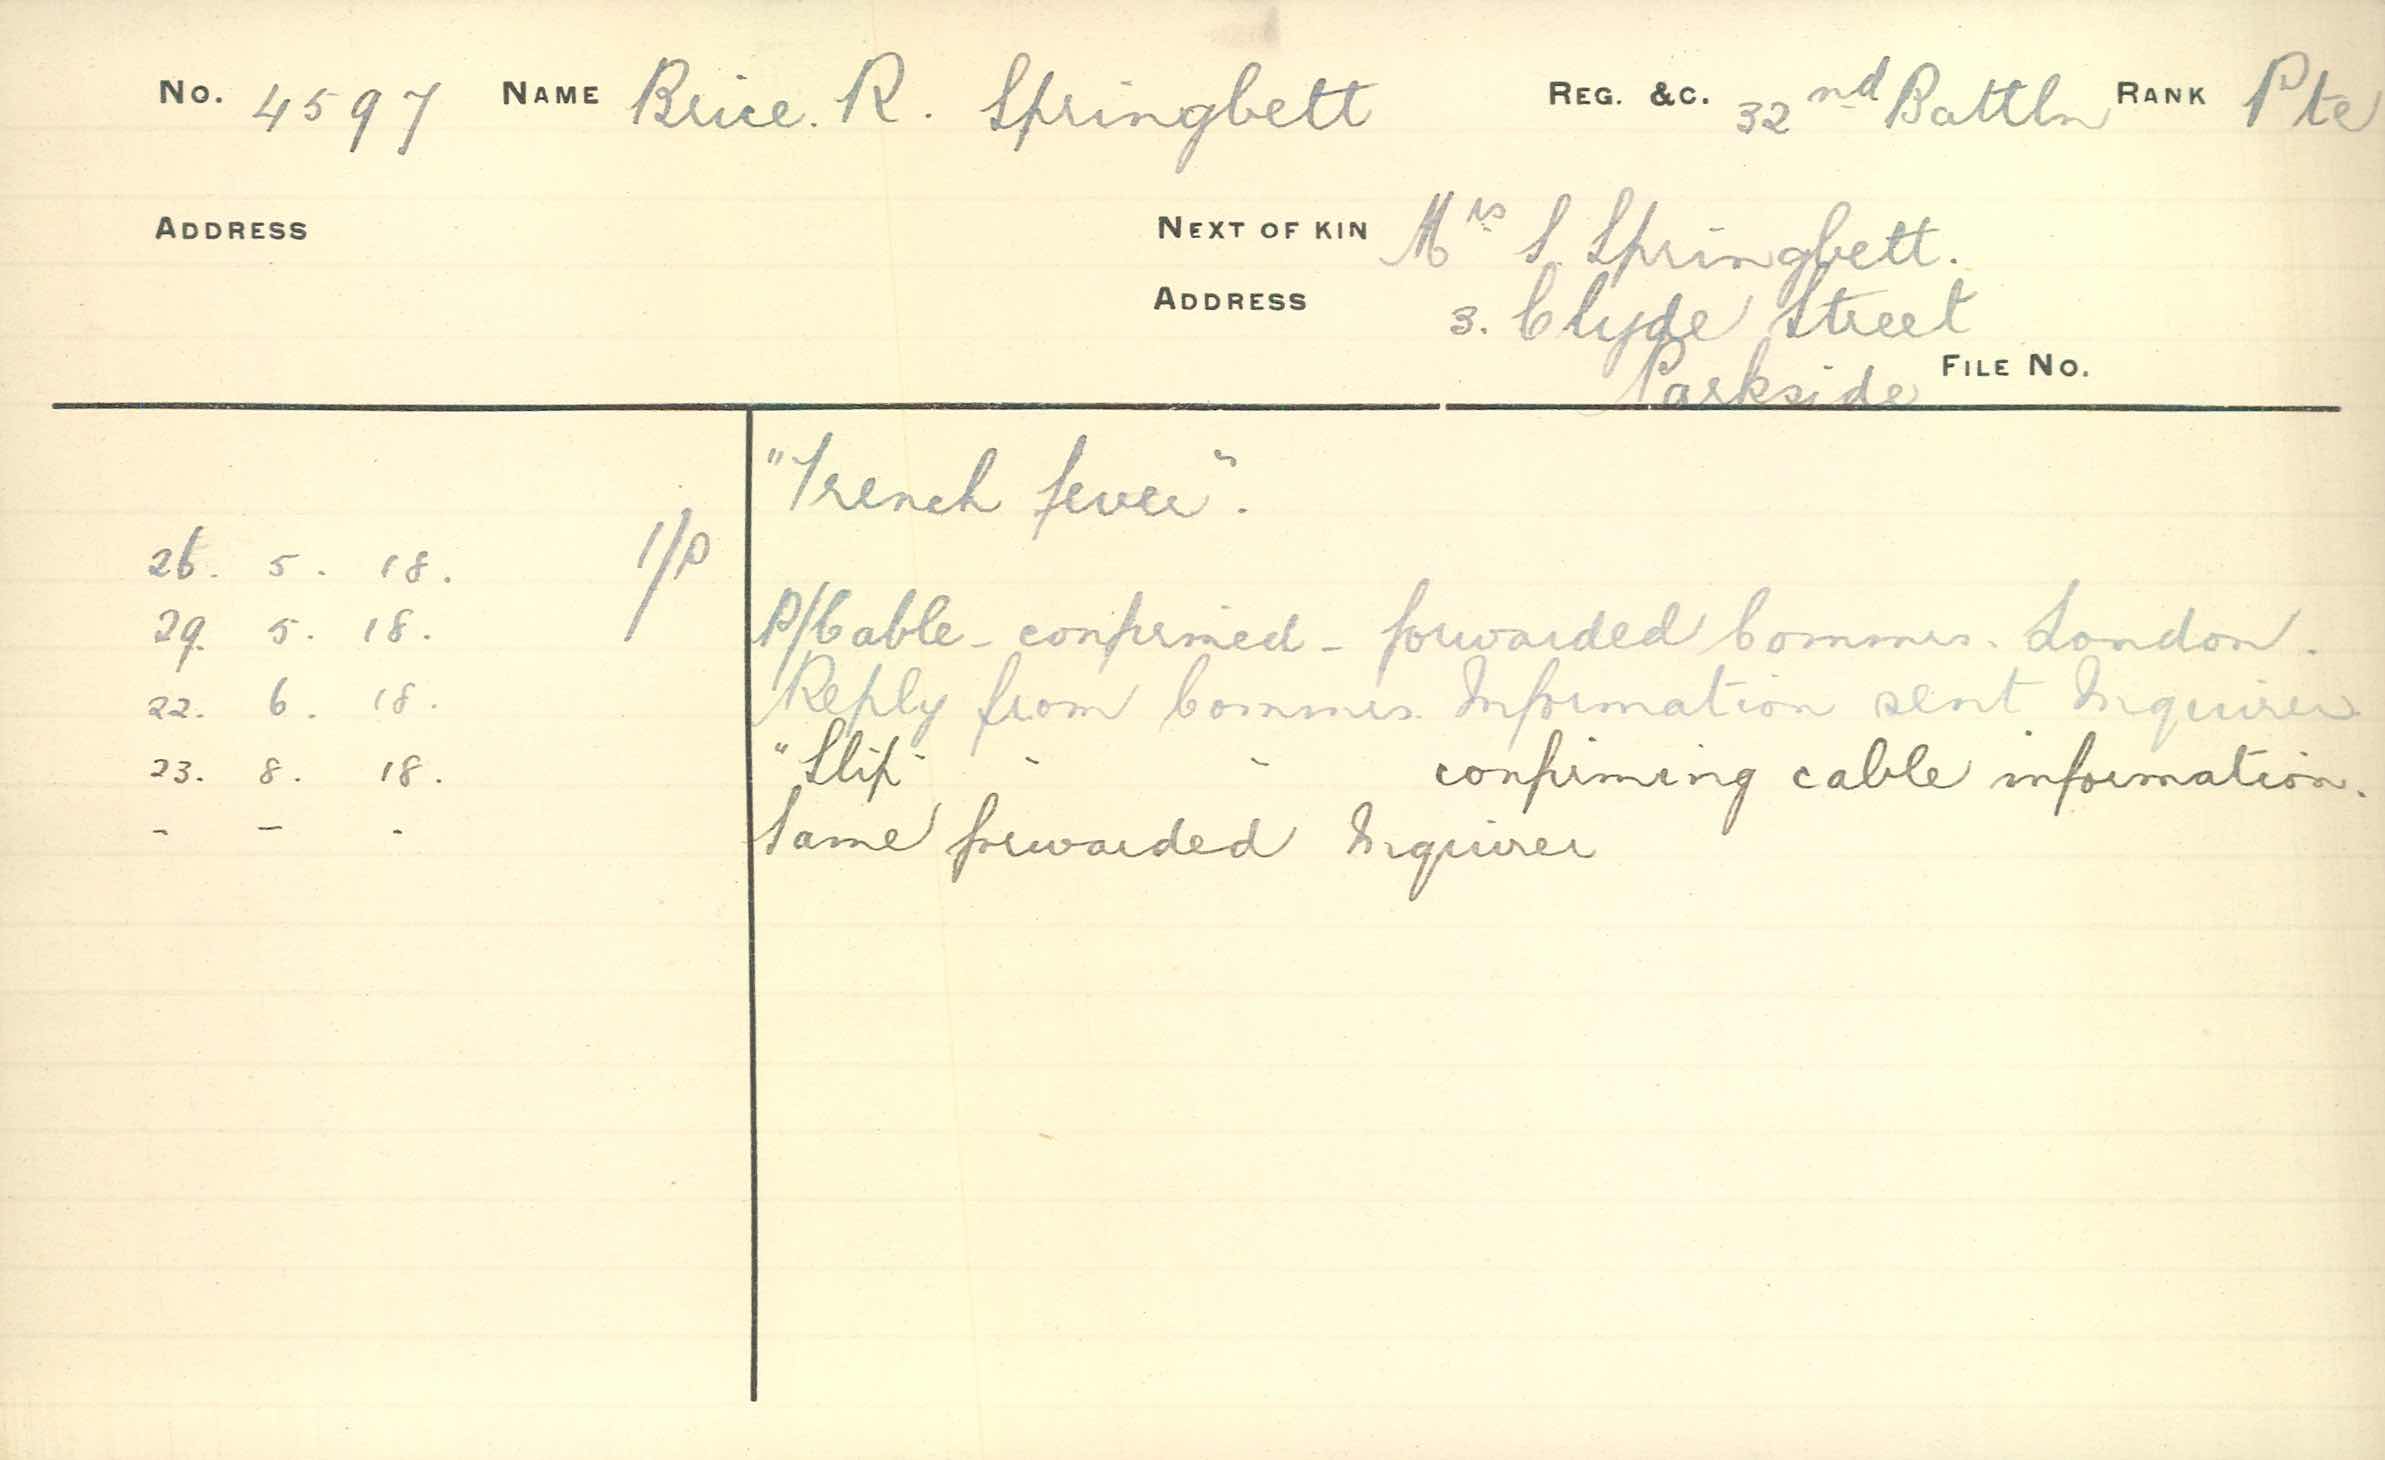 No. 4597 NAME Brice. R. Springbett REG. &C. 32nd Battln RANK Pte
ADDRESS NEXT OF KIN Mrs S. Springbett.
ADDRESS 3. Clyde Street
Parkside FILE No.
"Trench fever".
26. 5. 18.
29. 5. 18. P/Cable - confirmed - forwarded Commrs. London.
22. 6. 18. Reply from Commrs. Information sent Inquirer
23. 8. 18. "Slip" - - confirming cable information.
- - - Same forwarded Inquirer